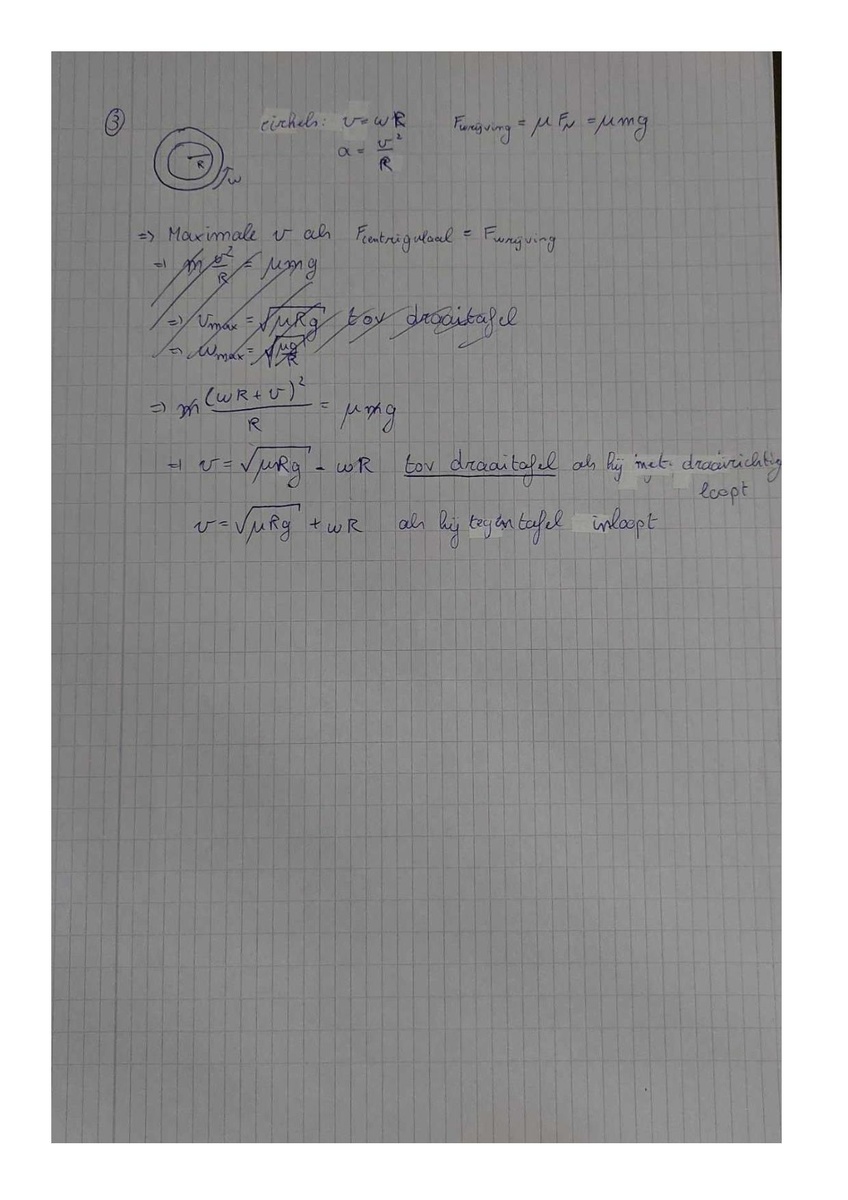 ③
cirkels: v = ωR    F_wrijving = μ F_N = μmg
a = v²/R
R    ω
=> Maximale v als F_centrifugaal = F_wrijving
=> m v²/R = μmg
=> v_max = √(μRg) tov draaitafel
=> ω_max = √(μg/R)
=> m (ωR + v)²/R = μmg
=> v = √(μRg) - ωR   tov draaitafel als hij met draairichting
loopt
v = √(μRg) + ωR   als hij tegen tafel inloopt